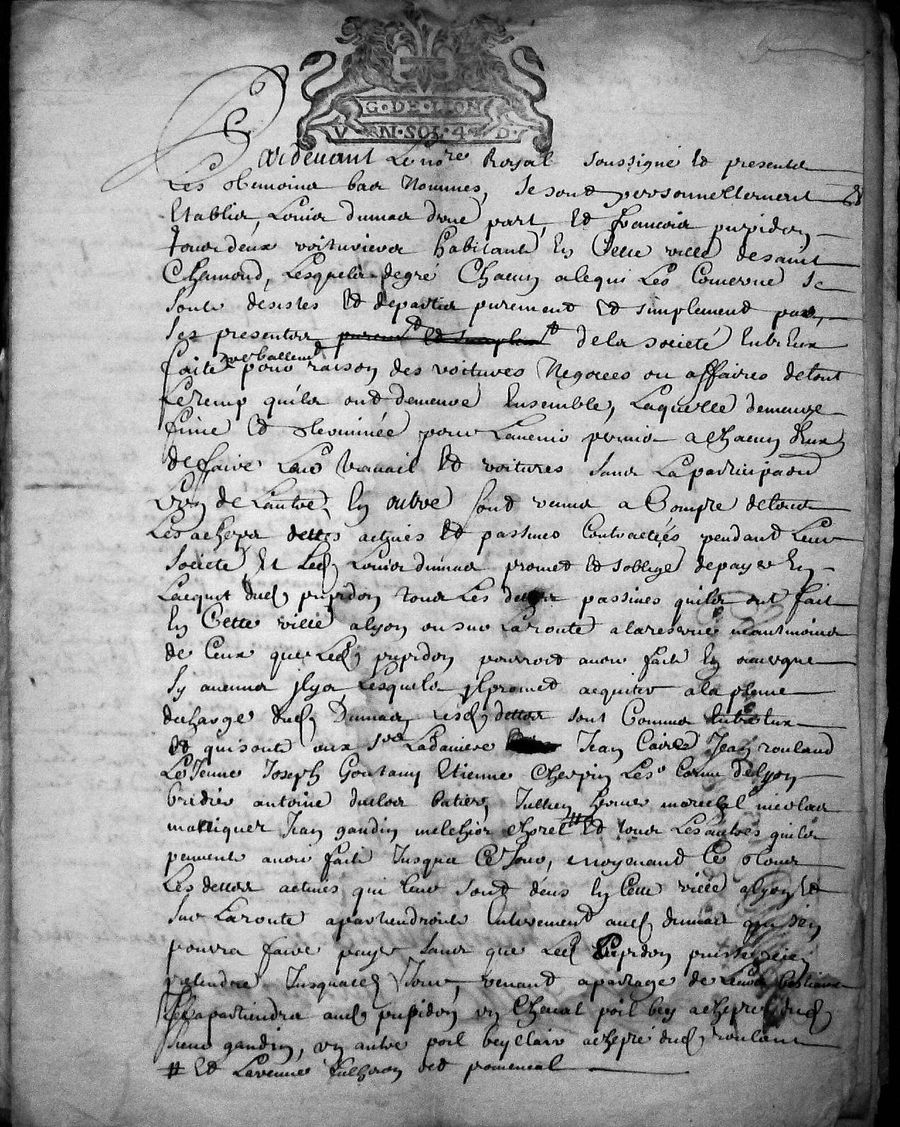 G·DE·LION
VN·SOL·4·D·
Pardevant Le no.re Royal soussigné et presents
Les temoins bas Nommes, se sont personnellement
Etablis, Louis dumas d'une part, Et francois pupidon
tous deux voituriers habitant En Cette ville de saint
Chamond, Lesquels de gré Chacun a le qui Les Concerne se
sont desistes Et departis purement Et simplement par
Ses presentes de la societé Entre Eux
faite verballemt pour raison des voitures Negoces ou affaires de tout
Le temp quils ont demeuré Ensemble, Laquelle demeure
finie Et terminée pour Lavenir permis a chacun d'Eux
de faire Leur travail Et voitures sans La participaon
L'un de Lautre, En outre sont venus a Compte de tous
Les achepts dettes actives Et passives Contractées pendant Leur
societé Et Led. Louis dumas promet Et soblige de payer En
Lacquit dud. pupidon tous Les dettes passives quils ont fait
En Cette ville a lyon ou sur La route a la reserve neantmoins
de Ceux que Led. pupidon pourroit avoir fait En auvergne
sy aucuns Il y a Lesquels Il promet acquiter a la pleine
decharge dud. Dumas, lesd. dettes sont Connus Entre Eux
Et qui sont aux sr Ladaniere Jean Caire Jean rouland
Le Jeune Joseph Goutany Etienne Cherpin Les de lyon
bridier antoine duclos batier, Jullien marechal nicolas
mattiquer Jean gaudin melchior choret # Et tous Les autres quils
peuvent avoir fait Jusqua Ce Jour, moyenant Ce tous
Les dettes actives qui Leur sont deus En Cette ville a lyon Et
sur La route apartiendront Entierement aud. dumas qui s'en
pourra faire payer sans que Led. Pupidon puisse rien
pretendre Jusqua ced. Jour, venant a partage de Leurs bestiaux
Il apartiendra aud. pupidon un Cheval poil bey achepté dud.
sieur gaudin, un autre poil bey clair achepté dud. roulant
# Et La veuve